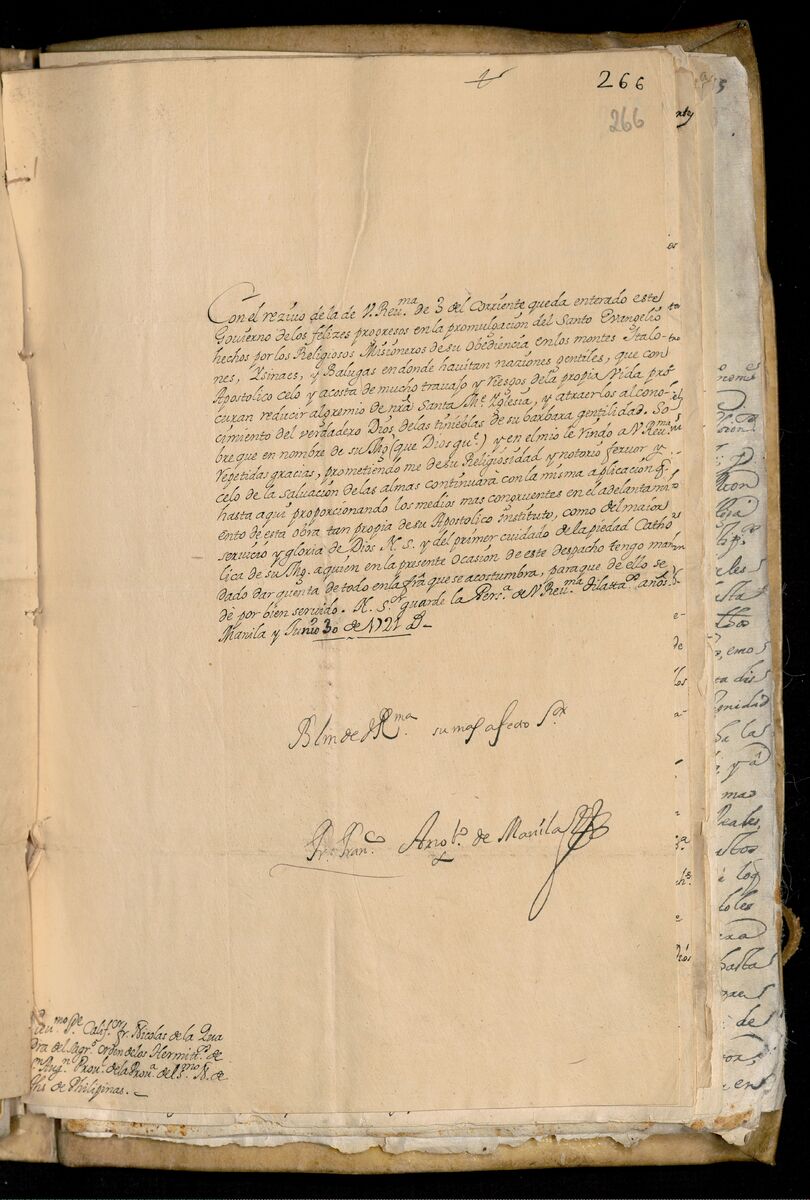 266
266
Con el reziuo de la de V. Reu.ma de 3 del corriente queda enterado este
Gouierno de los felizes progresos en la promulgacion del Santo Evangelio
hechos por los Religiosos Misioneros de su Obediencia en los montes Italo-
nes, Ysinaes, y Balugas en donde hauitan naziones gentiles, que con
Apostolico celo y acosta de mucho trauajo y riesgos de la propia Vida pro
curan reducir al gremio de nrã Santa M.e Yglesia, y atraerlos al cono-
cimiento del verdadero Dios, de las tinieblas de su barbara gentilidad. So
bre que en nombre de su Mg.(que Dios gu.e) y en el mio le rindo a V Reu.ma
repetidas gracias, prometiendo me de su Religiosidad y notorio feruor y
celo de la saluación de las almas continuará con la misma aplicacion q.
hasta aqui proporcionando los medios mas congruentes en el adelantami
ento de esta obra tan propia de su Apostolico instituto, como del maior
seruicio y gloria de Dios N. S. y del primer cuidado de la piedad Catho
lica de su Mg. aquien en la presente Ocasión de este despacho tengo man
dado dar quenta de todo en la frã que se acostumbra, para que de ello se
dè por bien seruido. N. S.or guarde la Pers.a de V Reu.ma dilatt.os años.
Manila y Junio 30 de 1721 a.
Blm de V R.ma su mas afecto S.or
Fr. Fran.co Arzob.po de Manila
Reu.mo P.e Calif.or fr. Nicolas de la Qua
dra del Sagr.o Orden de los Hermit.s de
Aug.n Prou.l de la Prou.a del S.mo N. de
Jhs de Philipinas.